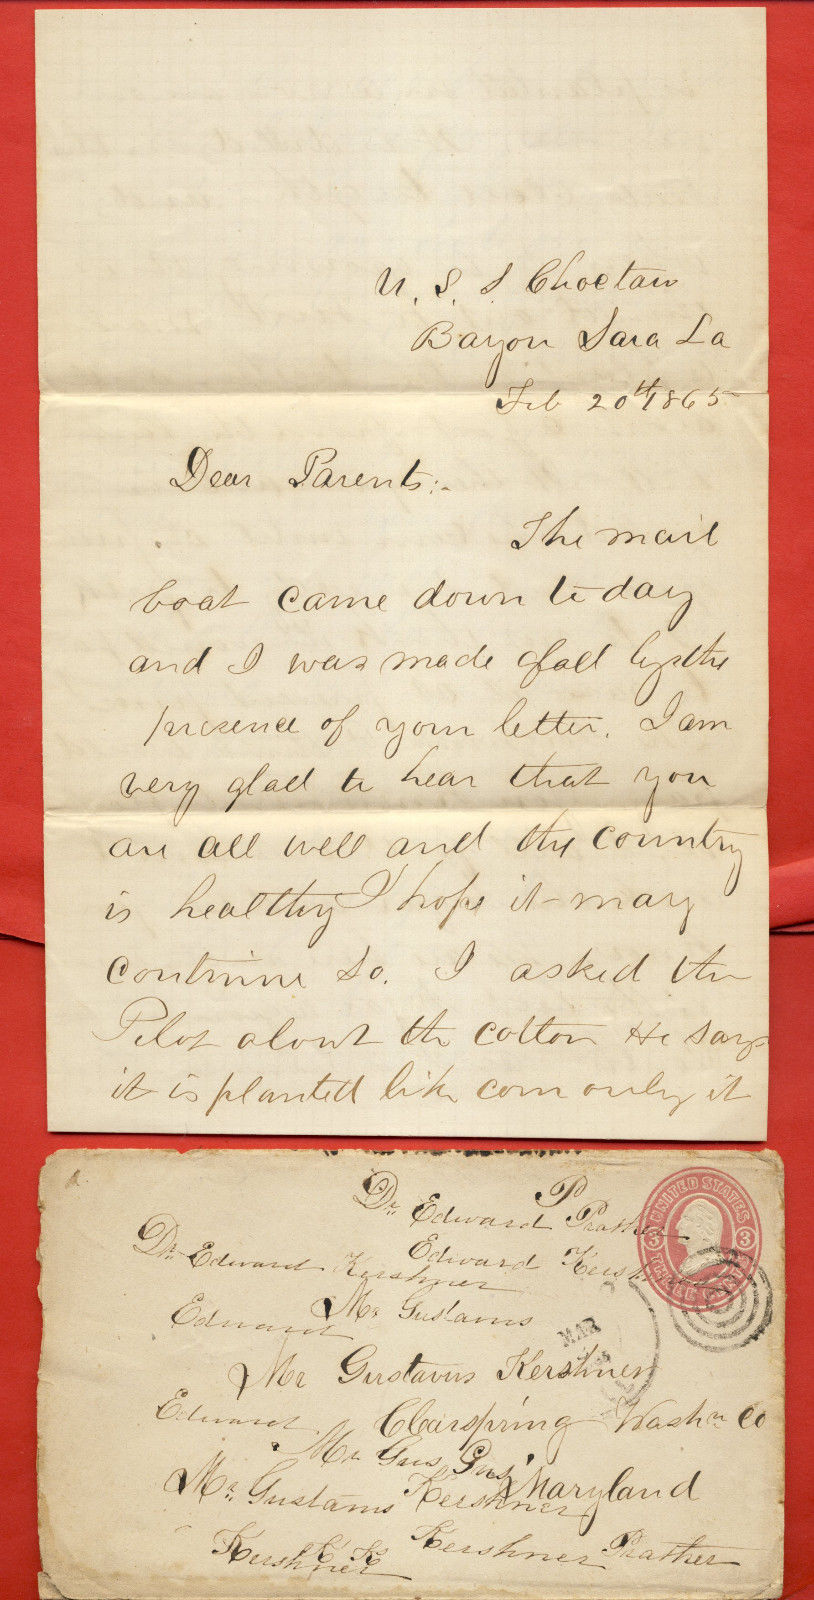 U. S. S Choctaw
Bayou Sara La
Feb 20th 1865
Dear Parents:-
The mail
boat came down to day
and I was made glad by the
presence of your letter. I am
very glad to hear that you
are all well and the country
is healthy I hope it may
continue so. I asked the
Pilot about the cotton He says
it is planted like corn only it
P
Dr. Edward Prather
Dr. Edward Kershner
Edward Kershner
Mr Gustavus
Edward
Mr Gustavus Kershner
Edward
Clearspring Washn Co
Mr Gus Gus
Maryland
Mr. Gustavus Kershner
Kershner K K
Kershner Prather
UNITED STATES
3 3
THREE CENTS
MAR